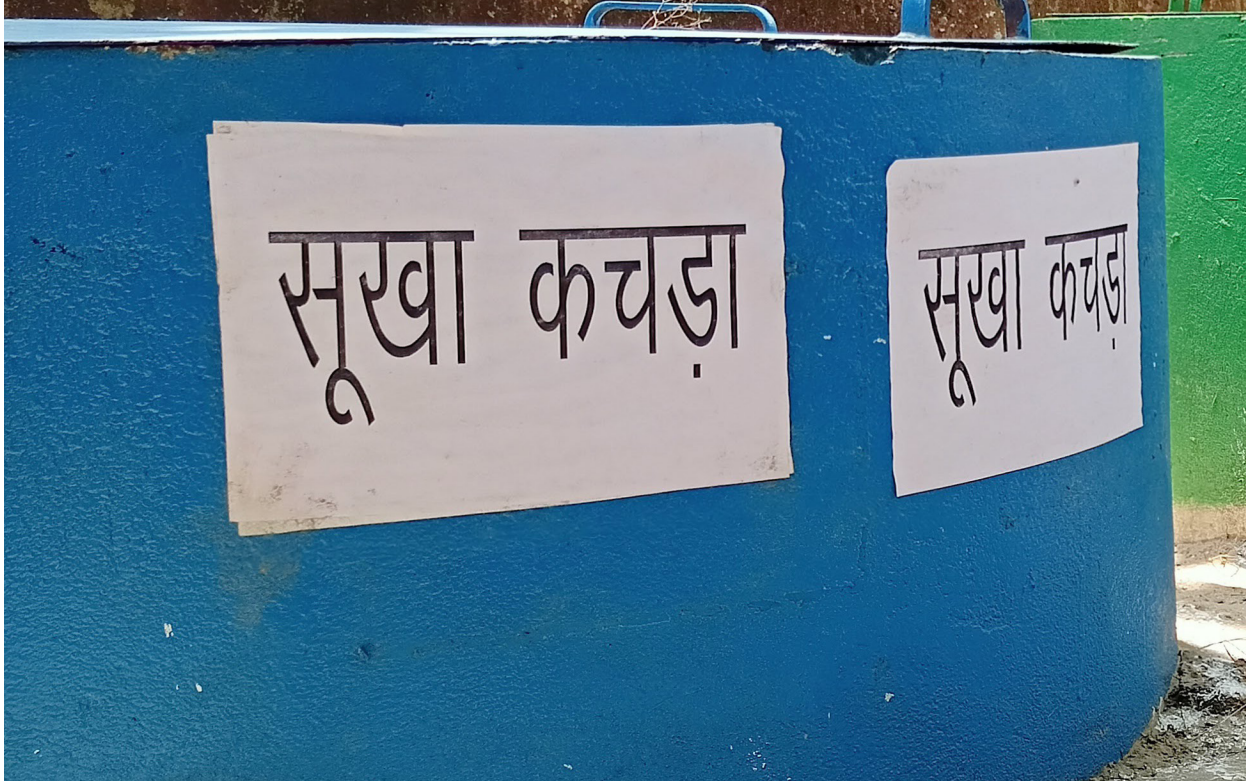 सूखा कचड़ा
सूखा कचड़ा